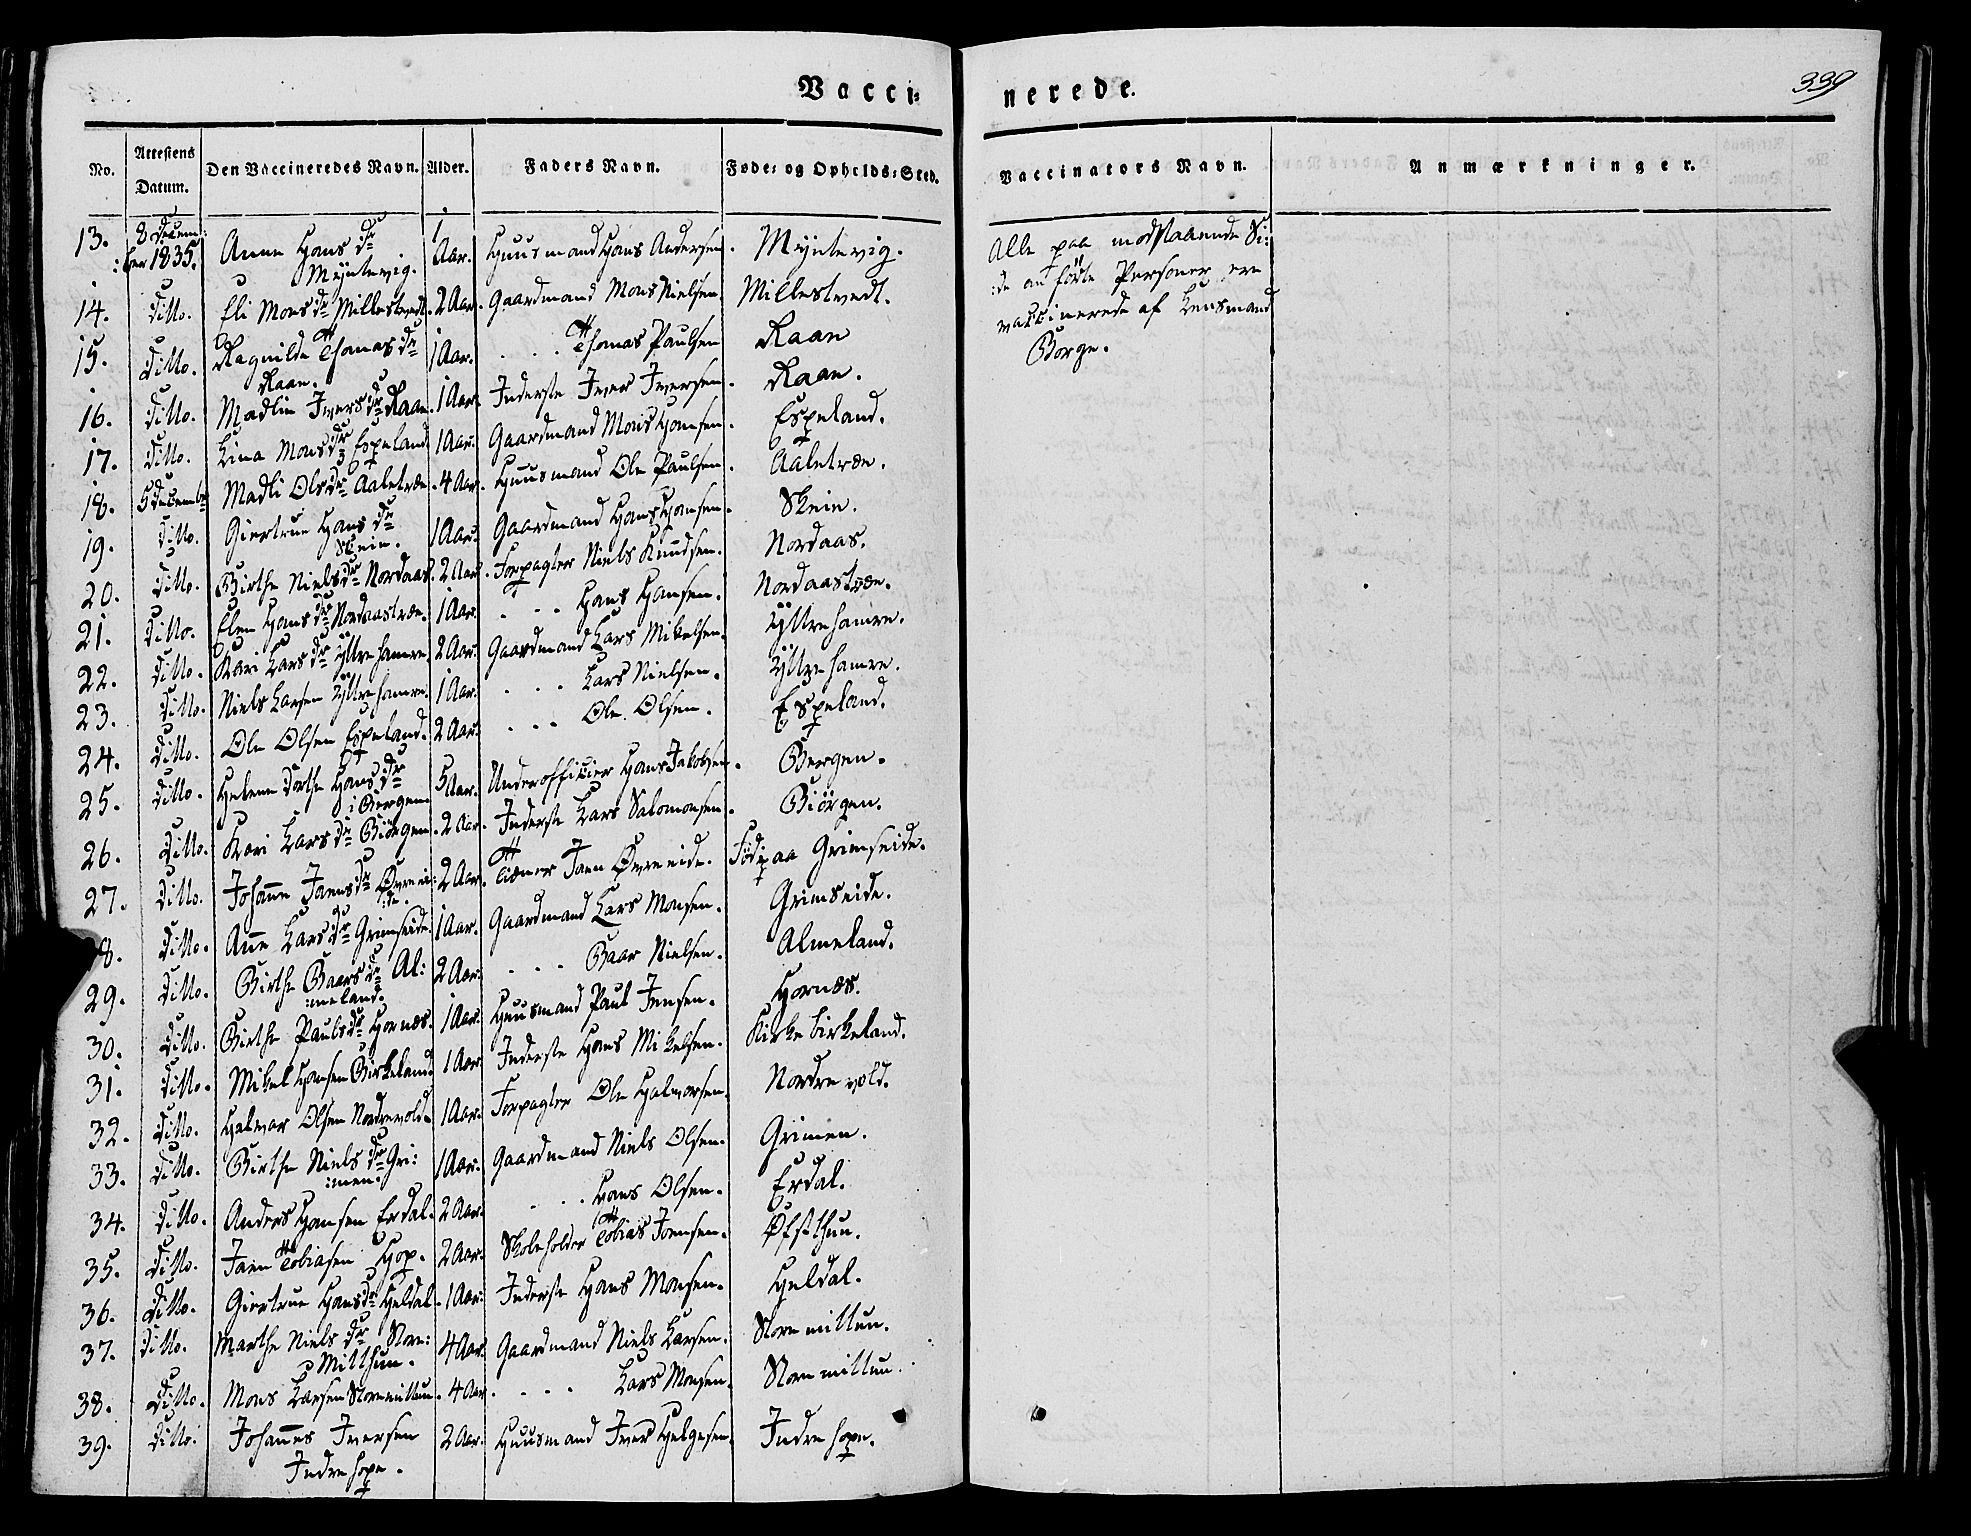 Vacci-
nerede.
339
No.
Attestens Datum.
Den Vaccineredes Navn.
Alder.
Faders Navn.
Føde- og Opholds-Sted.
Vaccinators Navn.
Anmærkninger.
13. 8 Decem:ber 1835. Anne Hans dr Myntevig. 1 Aar. Huusmand Hans Andersen. Myntevig.
14. Ditto. Eli Mons dr Millestvedt. 2 Aar. Gaardmand Mons Nielsen. Millestvedt.
15. Ditto. Ragnilde Thomas dr Raan. 1 Aar. . . . Thomas Paulsen Raan
16. Ditto. Madlin Ivers dr Raan. 1 Aar. Inderste Iver Iversen. Raan.
17. Ditto. Lina Mons dr Espeland. 1 Aar. Gaardmand Mons Hansen. Espeland.
18. 5 Decembr Madli Ols dr Aaletræe. 4 Aar. Huusmand Ole Paulsen. Aaletræe.
19. Ditto. Giertrue Hans dr Skein. 1 Aar. Gaardmand Hans Hansen. Skein.
20. Ditto. Birthe Niels dr Nordaas. 2 Aar. Forpagter Niels Knudsen. Nordaas.
21. Ditto. Elen Hans dr Nordaastræe. 1 Aar. . . . Hans Hansen. Nordaastræe.
22. Ditto. Kari Lars dr Yttrehamre. 2 Aar. Gaardmand Lars Mikelsen. Yttrehamre.
23. Ditto. Niels Larsen Yttrehamre. 1 Aar. . . . Lars Nielsen. Yttrehamre.
24. Ditto. Ole Olsen Espeland. 2 Aar. . . . Ole Olsen. Espeland.
25. Ditto. Helene Dorthe Hans dr i Bergen. 5 Aar. Underofficier Hans Jakobsen. Bergen.
26. Ditto. Kari Lars dr Biörgen. 2 Aar. Inderste Lars Salomonsen. Biörgen.
27. Ditto. Johanne Jaens dr Øvreei:de. 2 Aar. Tiener Jaen Øvreeide. Föd paa Grimseide.
8. Ditto. Anne Lars dr Grimseide. 1 Aar. Gaardmand Lars Monsen. Grimseide.
29. Ditto. Birthe Baars dr Al:meland. 2 Aar. . . . Baar Nielsen. Almeland.
30. Ditto. Birthe Pauls dr Hornæs. 1 Aar. Huusmand Paul Jensen. Hornæs.
31. Ditto. Mikel Hansen Birkeland. 1 Aar. Inderste Hans Mikelsen. Kirkebirkeland.
32. Ditto. Halvor Olsen Nordrevold. 1 Aar. Forpagter Ole Halvorsen. Nordrevold.
33. Ditto. Birthe Niels dr Gri:men. 1 Aar. Gaardmand Niels Olsen. Grimen.
34. Ditto. Anders Hansen Erdal. 2 Aar. . . . Hans Olsen. Erdal.
35. Ditto. Jaen Tobiasen Hop. 2 Aar. Skoleholder Tobias Jaensen. Øfsthun.
36. Ditto. Giertrue Hans dr Heldal. 1 Aar. Inderste Hans Monsen. Heldal.
37. Ditto. Marthe Niels dr Store:Mitthun. 4 Aar. Gaardmand Niels Larsen. Storemittun.
38. Ditto. Mons Larsen Storemittun. 4 Aar. . . . Lars Monsen. Storemittun.
39. Ditto. Johannes Iversen Indrehope. 2 Aar. Huusmand Iver Helgesen. Indrehope.
Alle paa modstaaende Si:
:de anførte Personer ere
vaccinerede af Lensmand
Borge.